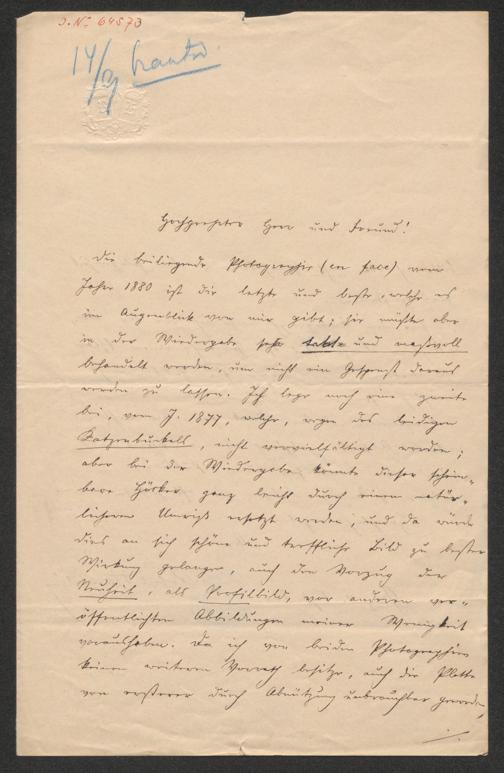 J. No 64573
14/
Hochgeehrter Herr und Freund!
Die beiliegende Photographie (en face) vom
Jahre 1880 ist die letzte und beste, welche es
im Augenblick von mir gibt; sie müßte aber
in der Wiedergabe sehr takt- und maßvoll
behandelt werden, um nicht ein Gespenst daraus
werden zu lassen. Ich lege noch eine zweite
bei, vom J. 1877, welche, wegen des leidigen
Katzenbuckels, nicht vervielfältigt worden;
aber bei der Wiedergabe könnte dieser schein-
bare Höcker ganz leicht durch einen natür-
licheren Umriß ersetzt werden, und da würde
dies an sich schöne und treffliche Bild zu bester
Wirkung gelangen, auch den Vorzug der
Neuheit, als Profilbild, vor anderen ver-
öffentlichten Abbildungen meiner Wenigkeit
voraushaben. Da ich von beiden Photographien
keinen weiteren Vorrath besitze, auch die Platte
von ersterer durch Abnützung unbrauchbar geworden,